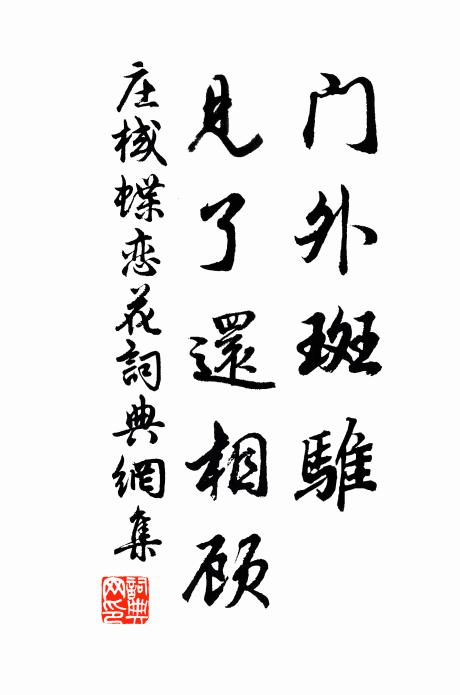 门外斑騅
見了還相顾
庄棫蝶恋花詞典網集
詞典网印